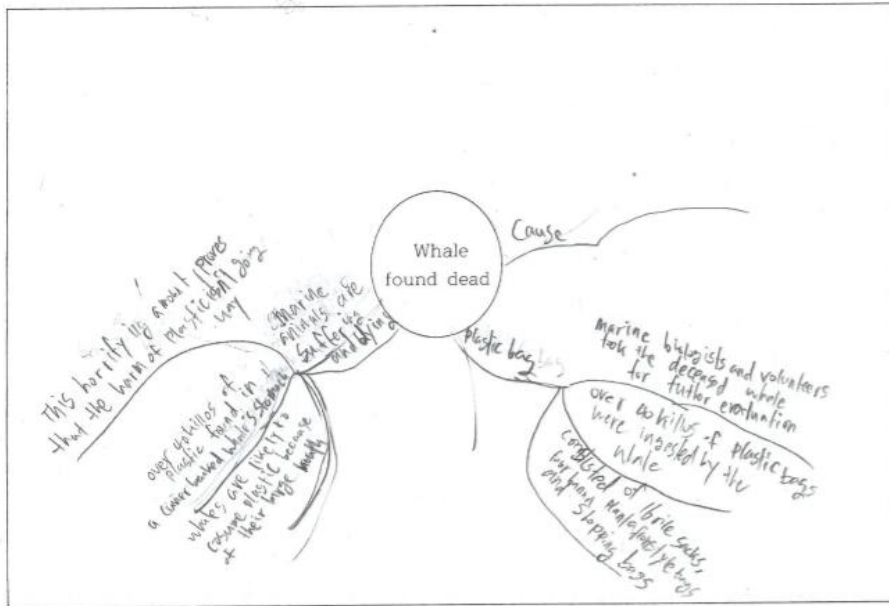 Whale
found dead
Cause
plastic bag
marine biologists and volunteers
took the deceased whale
for futher evaluation
over 40 kilos of plastic bags
were ingested by the
whale
consisted of 16 rice sacks,
bags
and shopping bags
marine
animals are
suffering
and dying
This horrifying amount proves
that the harm of plastic isn't going
over 40 kilos of
plastic found in
a beaked whale's stomach
whales are likely to
cosume plastic because
of their large